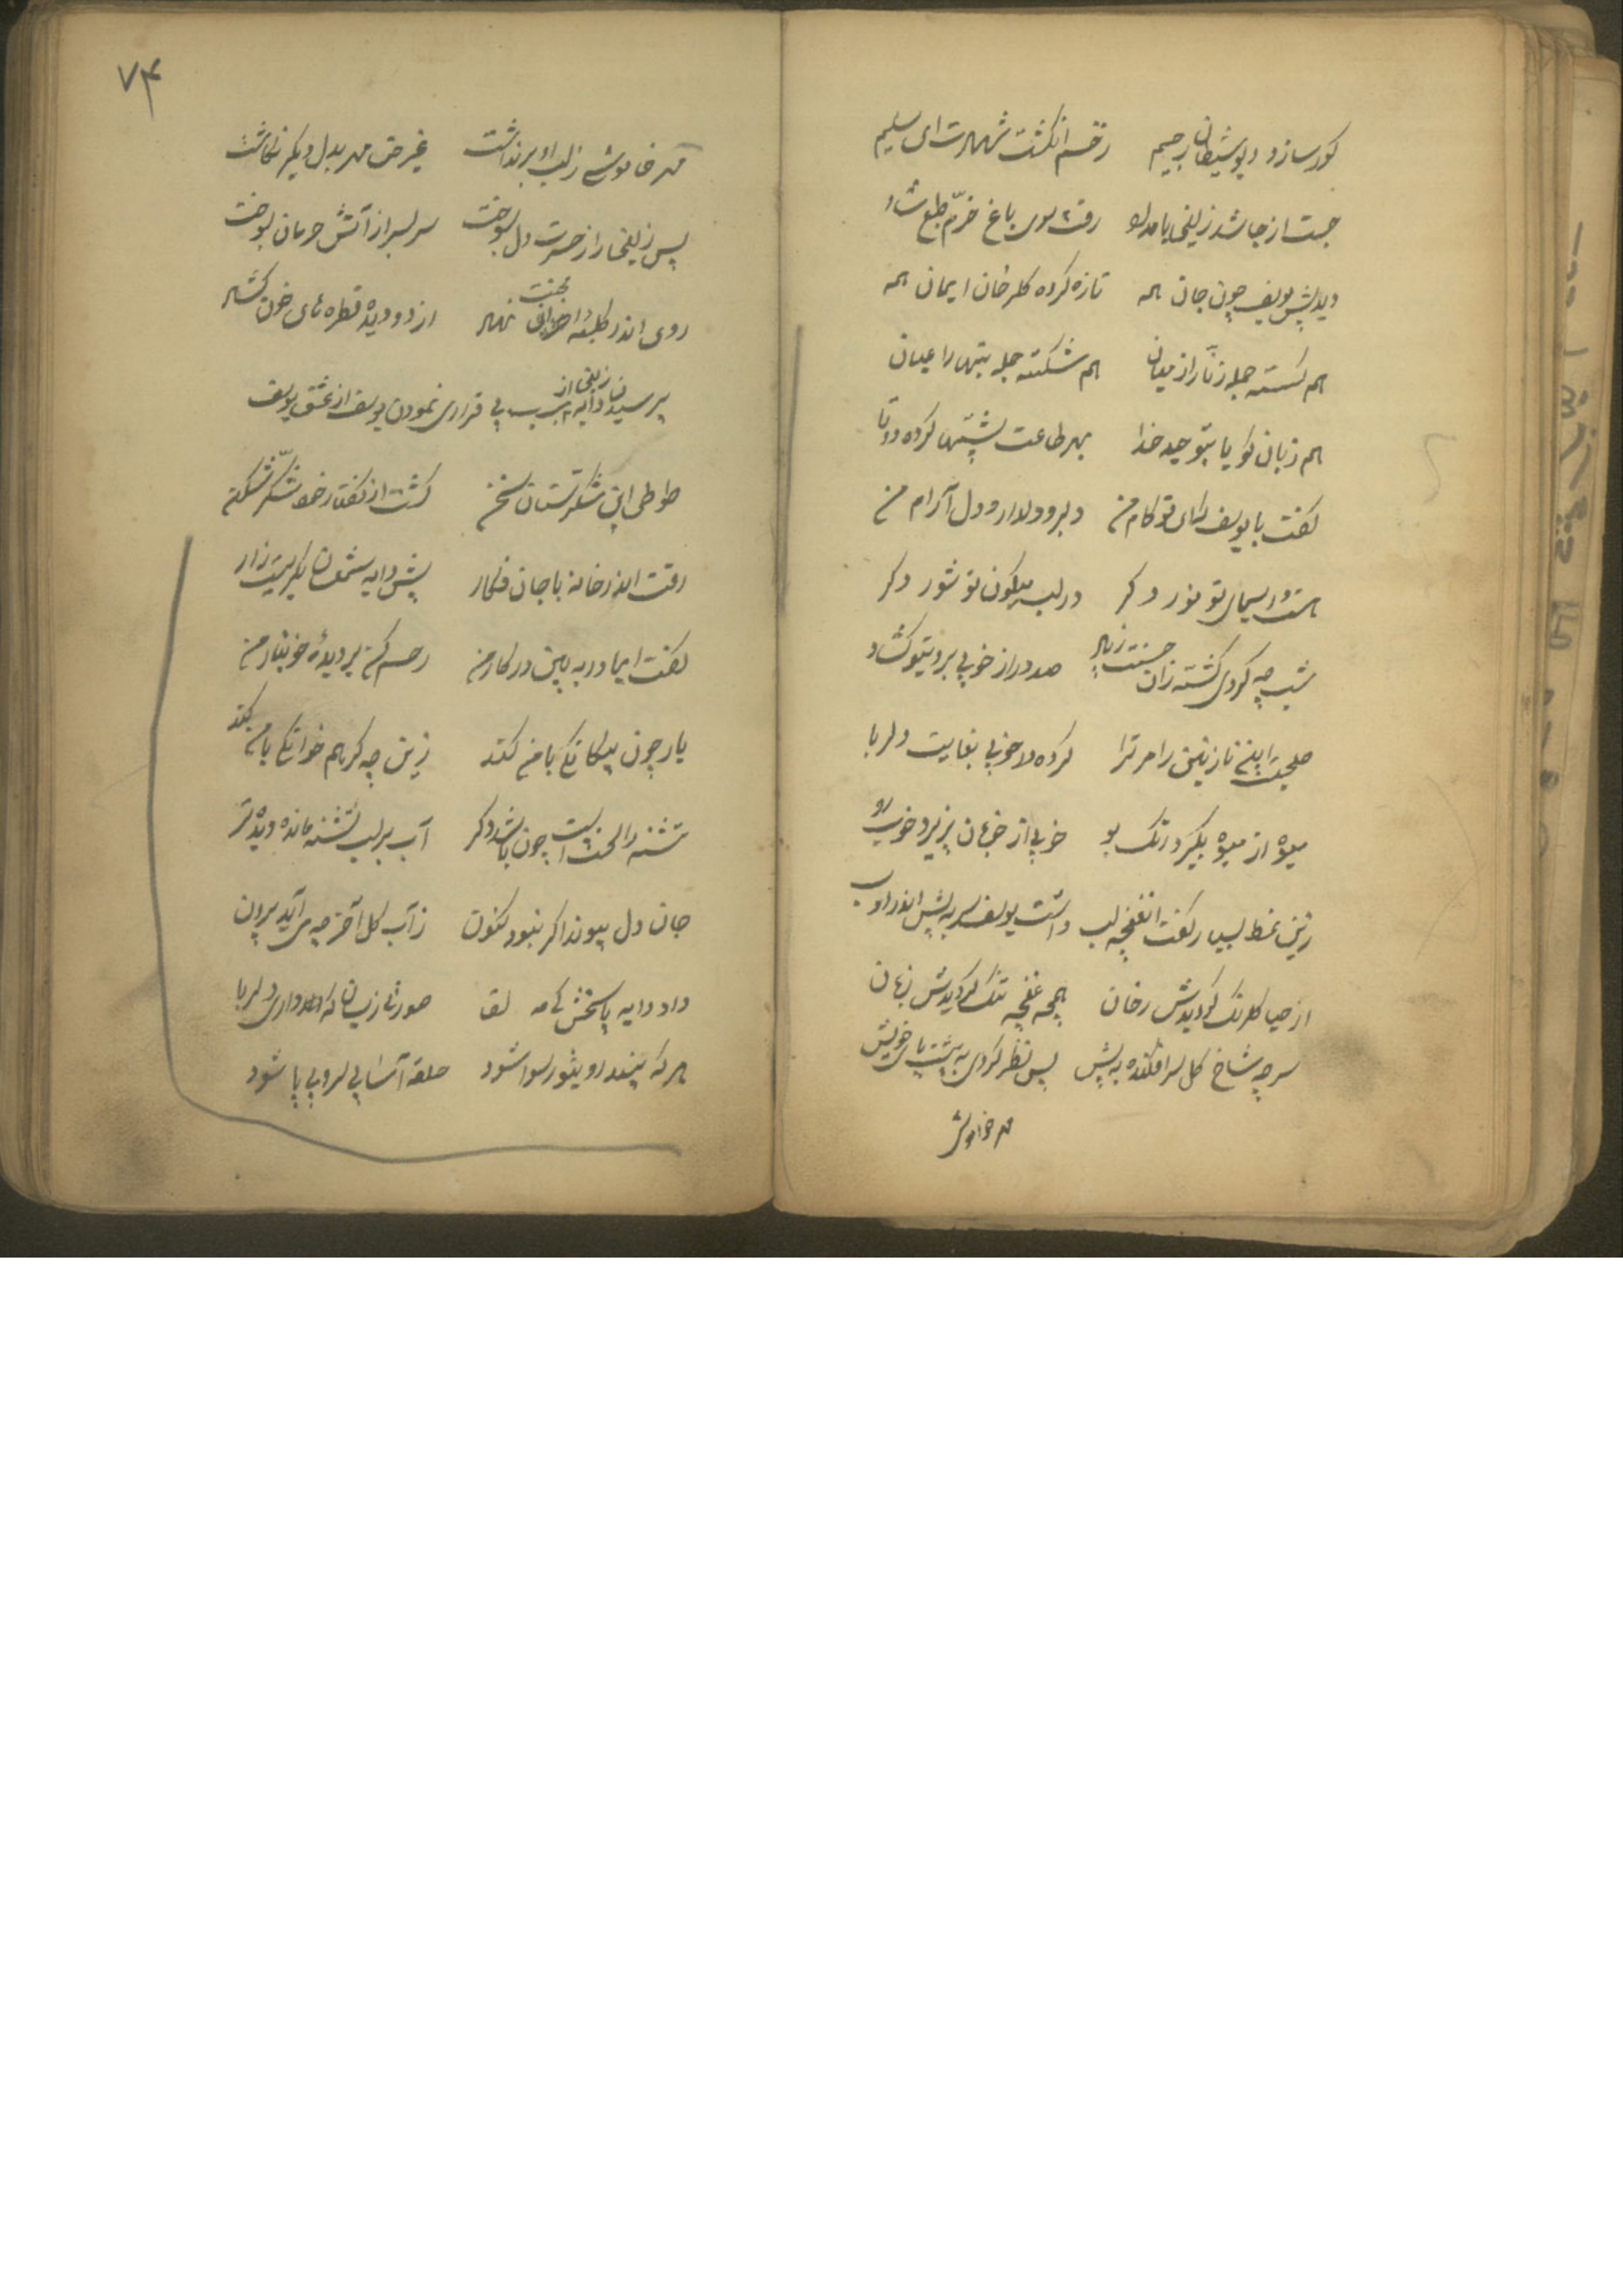 کور سازد دیو شیطان رجیم زخم انکشت شهادت ای سلیم
جست از جا شد زلیخا بامداد رفت سوی باغ خرّم طبع شاد
دید پیش یوسف چون جان همه تازه کرده کلرخان ایمان همه
هم کسسته جمله زنّار از میان هم شکسته جمله بتها را عیان
هم زبان کویا بتوحید خدا بهر طاعت پشتها کرده دوتا
کفت با یوسف که ای تو کام من دلبر و دلدار و دل آرام من
هست در سیمای تو نور دکر در لب میکون تو شور دکر
شب چه کردی کشته زان حسنت زیاد صد در از خوبی برویتو کشاد
صحبت این نازنین را مر ترا کرده در خوبی بغایت دلربا
میوه از میوه بکیرد رنک بو خوبی از خوبان پزیرد خوب رو
زین نمط بسیار کفت آنغنچه لب داشت یوسف سر به پیش اندر ادب
از حیا کلرنک کردیدش رخان همچه غنچه تنک کردیدش زبان
سر چه شاخ کل سر افکنده به پیش بس نظر کردی به پشت پای خویش
مهر خاموشی
۷۴
مهر خاموشی ز لب او برنداشت غیر حق مهر بدل دیکر نکاشت
پس زلیخا را ز حسرت دل بسوخت سر بسر از آتش حرمان بسوخت
روی اندر کلبه احزان نهاد از دو دیده قطره های خون کشاد
محنت
پرسیدن دایه از زلیخا سبب بی قراری نمودن یوسف از عشق یوسف
طوطی این شکرستان سخن کشت از کفتار خود شکّر شکن
رفت اندر خانه با جان فکار پیش دایه شمع سان بکریست زار
کفت ایمادر به بین در کار من رحم کن بر دیدهٔ خونبار من
یار چون بیکانکی با من کند زین چه کر همخوانکی با من کند
تشنه را لخت چون باشد دکر آب بر لب تشنه مانده دیده تر
جان دل پیوند اکر نبود کنون ز آب کل آخر چه می آید برون
داد دایه پاسخش کای مه لقا صورتی زینسان که تو داری دلربا
هر که بیند رو بتو رسوا شود حلقه آسا بی سر و بی پا شود